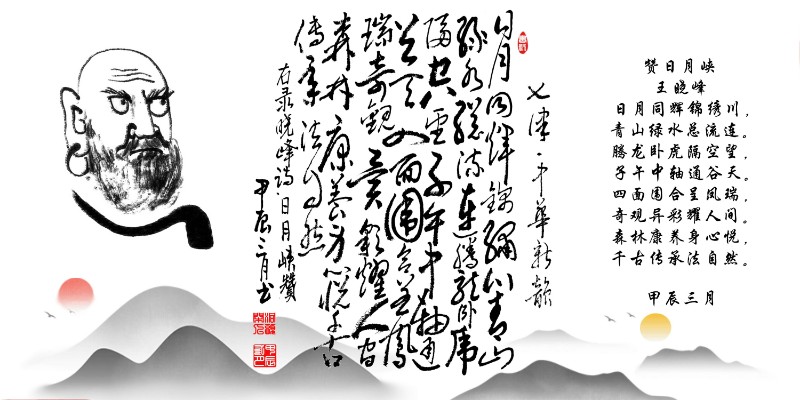 七律·中華新韵
日月同輝錦繡川青山
緑水總流連騰龍卧虎
隔空望子午中軸通
谷天四面圍合呈鳳
瑞奇觀異彩耀人間
森林康養身心悦千古
傳承法自然
右录曉峰詩日月峽贊
甲辰三月书
赞日月峡
王晓峰
日月同辉锦绣川，
青山绿水总流连。
腾龙卧虎隔空望，
子午中轴通谷天。
四面围合呈凤瑞，
奇观异彩耀人间。
森林康养身心悦，
千古传承法自然。
甲辰三月